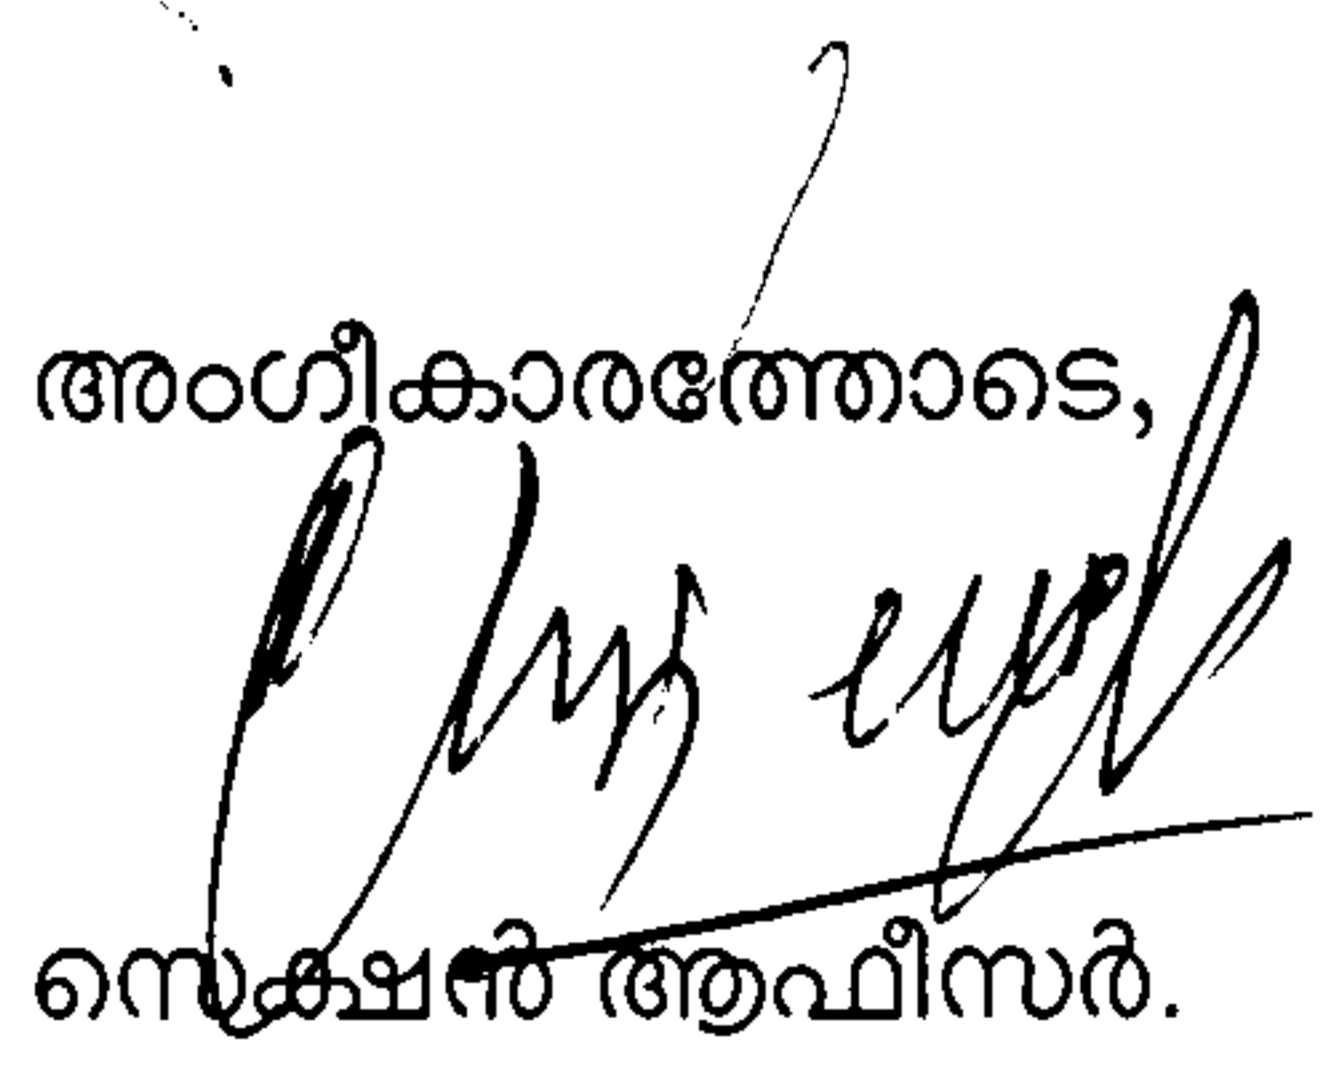 അംഗീകാരത്തോടെ,
സെക്ഷൻ ആഫീസർ.